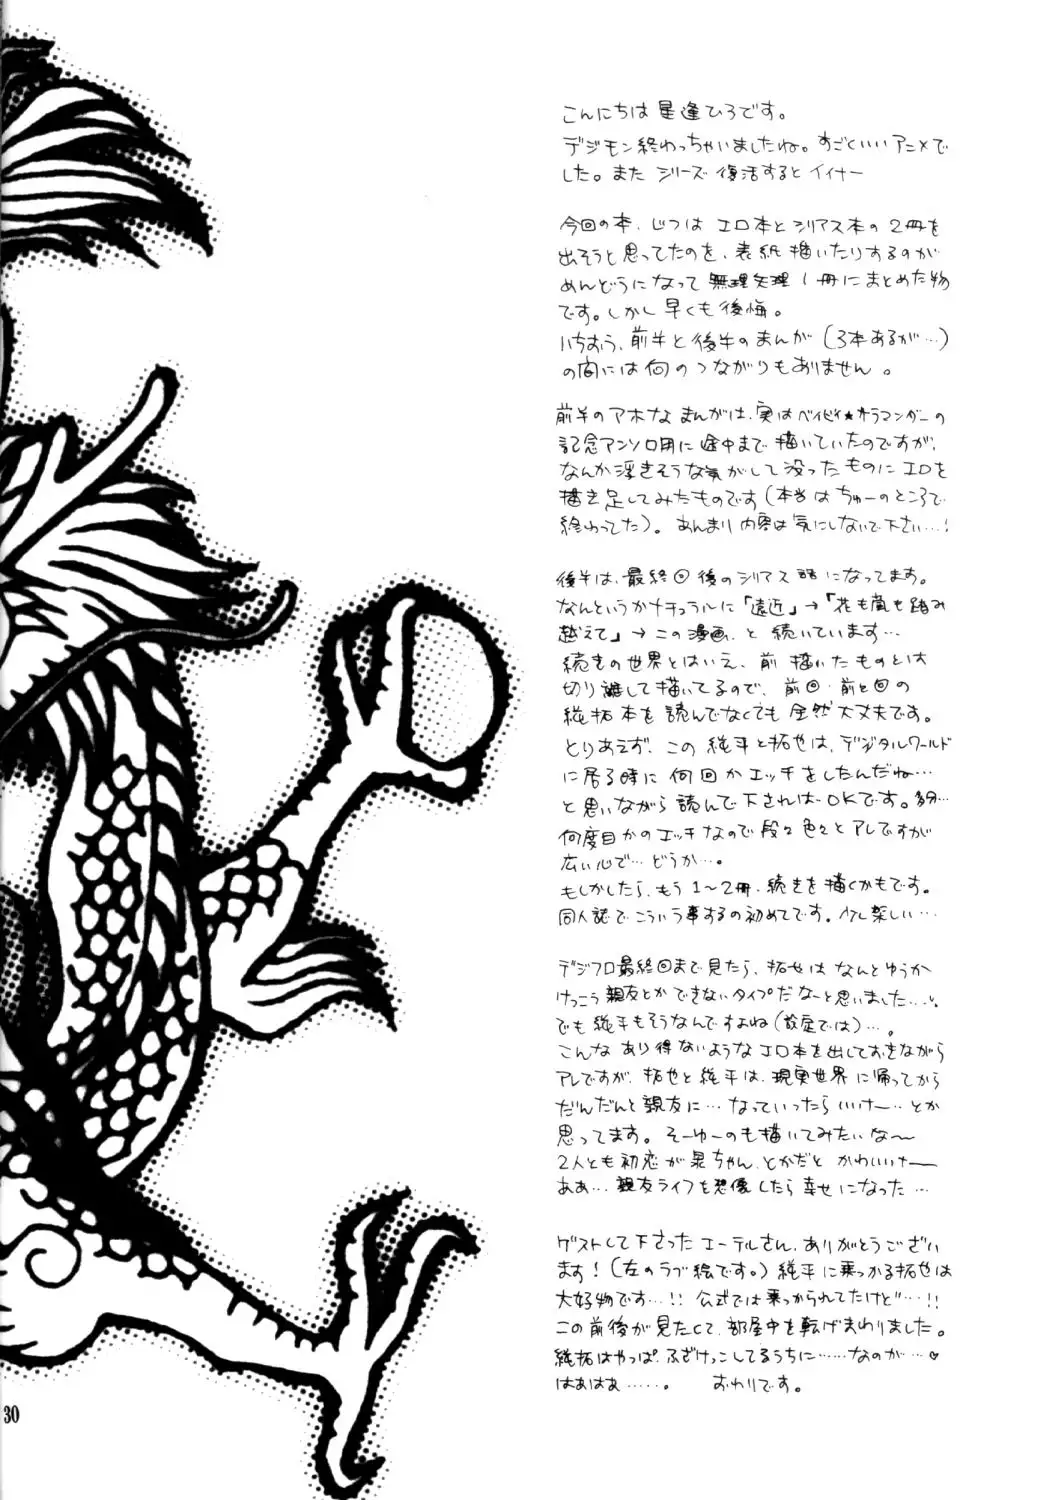 こんにちは星逢ひろです。
デジモン終わっちゃいましたね。すごくいいアニメで
した。また シリーズ 復活するとイイナー
今回の本、じつは エロ本とシリアス本の2冊を
出そうと思ってたのを、表紙描いたりするのが
めんどうになって 無理矢理1冊にまとめた物
です。しかし早くも後悔。
いちおう、前半と後半のまんが(3本あるが…)
の間には何のつながりもありません。
前半のアホなまんがは、実はベイビィ★オラマンガーの
記念アンソロ用に途中まで描いていたのですが、
なんか浮きそうな気がして没ったものにエロを
描き足してみたものです(本当はちゅーのところで
終わってた)。あんまり内容は気にしないで下さい…!
後半は、最終回後のシリアス話になってます。
なんというかナチュラルに「遠近」→「花も嵐も踏み
越えて」→この漫画、と続いています…
続きの世界とはいえ、前描いたものとは
切り離して描いてるので、前回・前々回の
純拓本を読んでなくても全然大丈夫です。
とりあえず、この純平と拓也は、デジタルワールド
に居る時に何回かエッチをしたんだね…
と思いながら読んで下さればOKです。多分…
何度目かのエッチなので段々色々とアレですが
広い心で…どうか…。
もしかしたら、もう1~2冊、続きを描くかもです。
同人誌でこういう事するの初めてです。少し楽しい…
デジフロ最終回まで見たら、拓也はなんとゆうか
けっこう親友とかできないタイプだなーと思いました…。
でも純平もそうなんですよね(設定では)…。
こんなあり得ないようなエロ本を出しておきながら
アレですが、拓也と純平は、現実世界に帰ってから
だんだんと親友に…なっていったらいいナー…とか
思ってます。そーゆーのも描いてみたいな〜
2人とも初恋が泉ちゃん、とかだとかわいいナー
ああ…親友ライフを想像したら幸せになった…
ゲストして下さったエーテルさん、ありがとうござい
ます!(左のラブ絵です。)純平に乗っかる拓也は
大好物です…!!公式では乗っかられてたけど…!!
この前後が見たくて、部屋中を転げまわりました。
純拓はやっぱふざけっこしてるうちに……なのが…♡
はあはあ……。 おわりです。
30